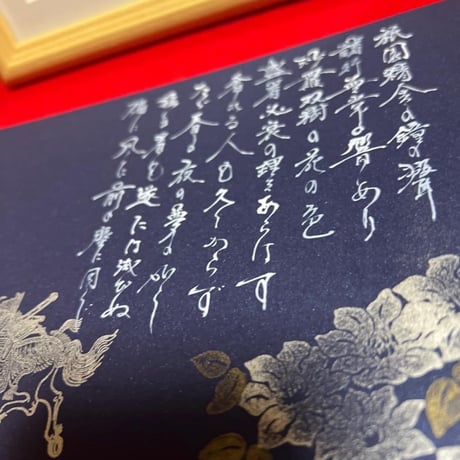 祇園精舎の鐘の聲
諸行無常の響あり
沙羅双樹の花の色
盛者必衰の理をあらはす
奢れる人も久しからず
唯春の夜の夢の如し
猛き者も遂には滅びぬ
偏に風の前の塵に同じ